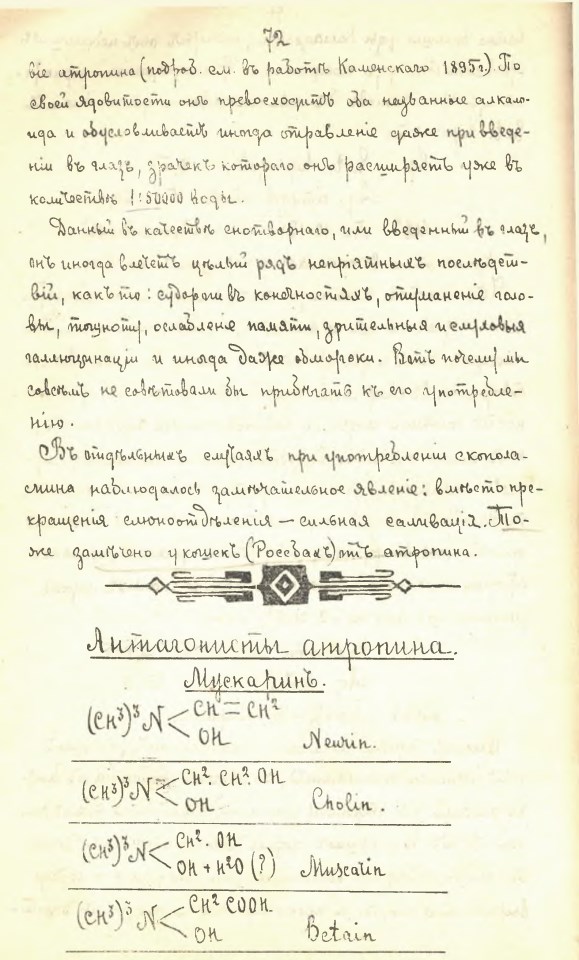 72
віе атропина (подроб. см. въ работѣ Каменскаго 1895 г.) По
своей ядовитости онъ превосходитъ оба названные алкало-
ида и обусловливаетъ иногда отравленіе даже при введе-
ніи въ глазъ, зрачекъ котораго онъ расширяетъ уже въ
количествѣ 1:50000 воды.
Данный въ качествѣ снотворнаго, или введенный въ глазъ,
онъ иногда влечетъ цѣлый рядъ непріятныхъ послѣдст-
вій, какъ то: судороги въ конечностяхъ, отуманеніе голо-
вы, тошноту, ослабленіе памяти, зрительныя и слуховыя
галлюцинаціи и иногда даже обмороки. Вотъ почему мы
совсѣмъ не совѣтовали бы прибѣгать къ его употребле-
нію.
Въ отдѣльныхъ случаяхъ при употребленіи скопола-
мина наблюдалось замѣчательное явленіе: вмѣсто пре-
кращенія слюноотдѣленія — сильная саливація. То-
же замѣчено у кошекъ (Россбахъ) отъ атропина.
Антагонисты атропина.
Мускаринъ.
(CH³)³N < CH = CH²
OH Neurin.
(CH³)³N < CH². CH². OH
OH Cholin.
(CH³)³N < CH². OH
OH + H²O (?) Muscarin
(CH³)³N < CH² COOH
OH Betain